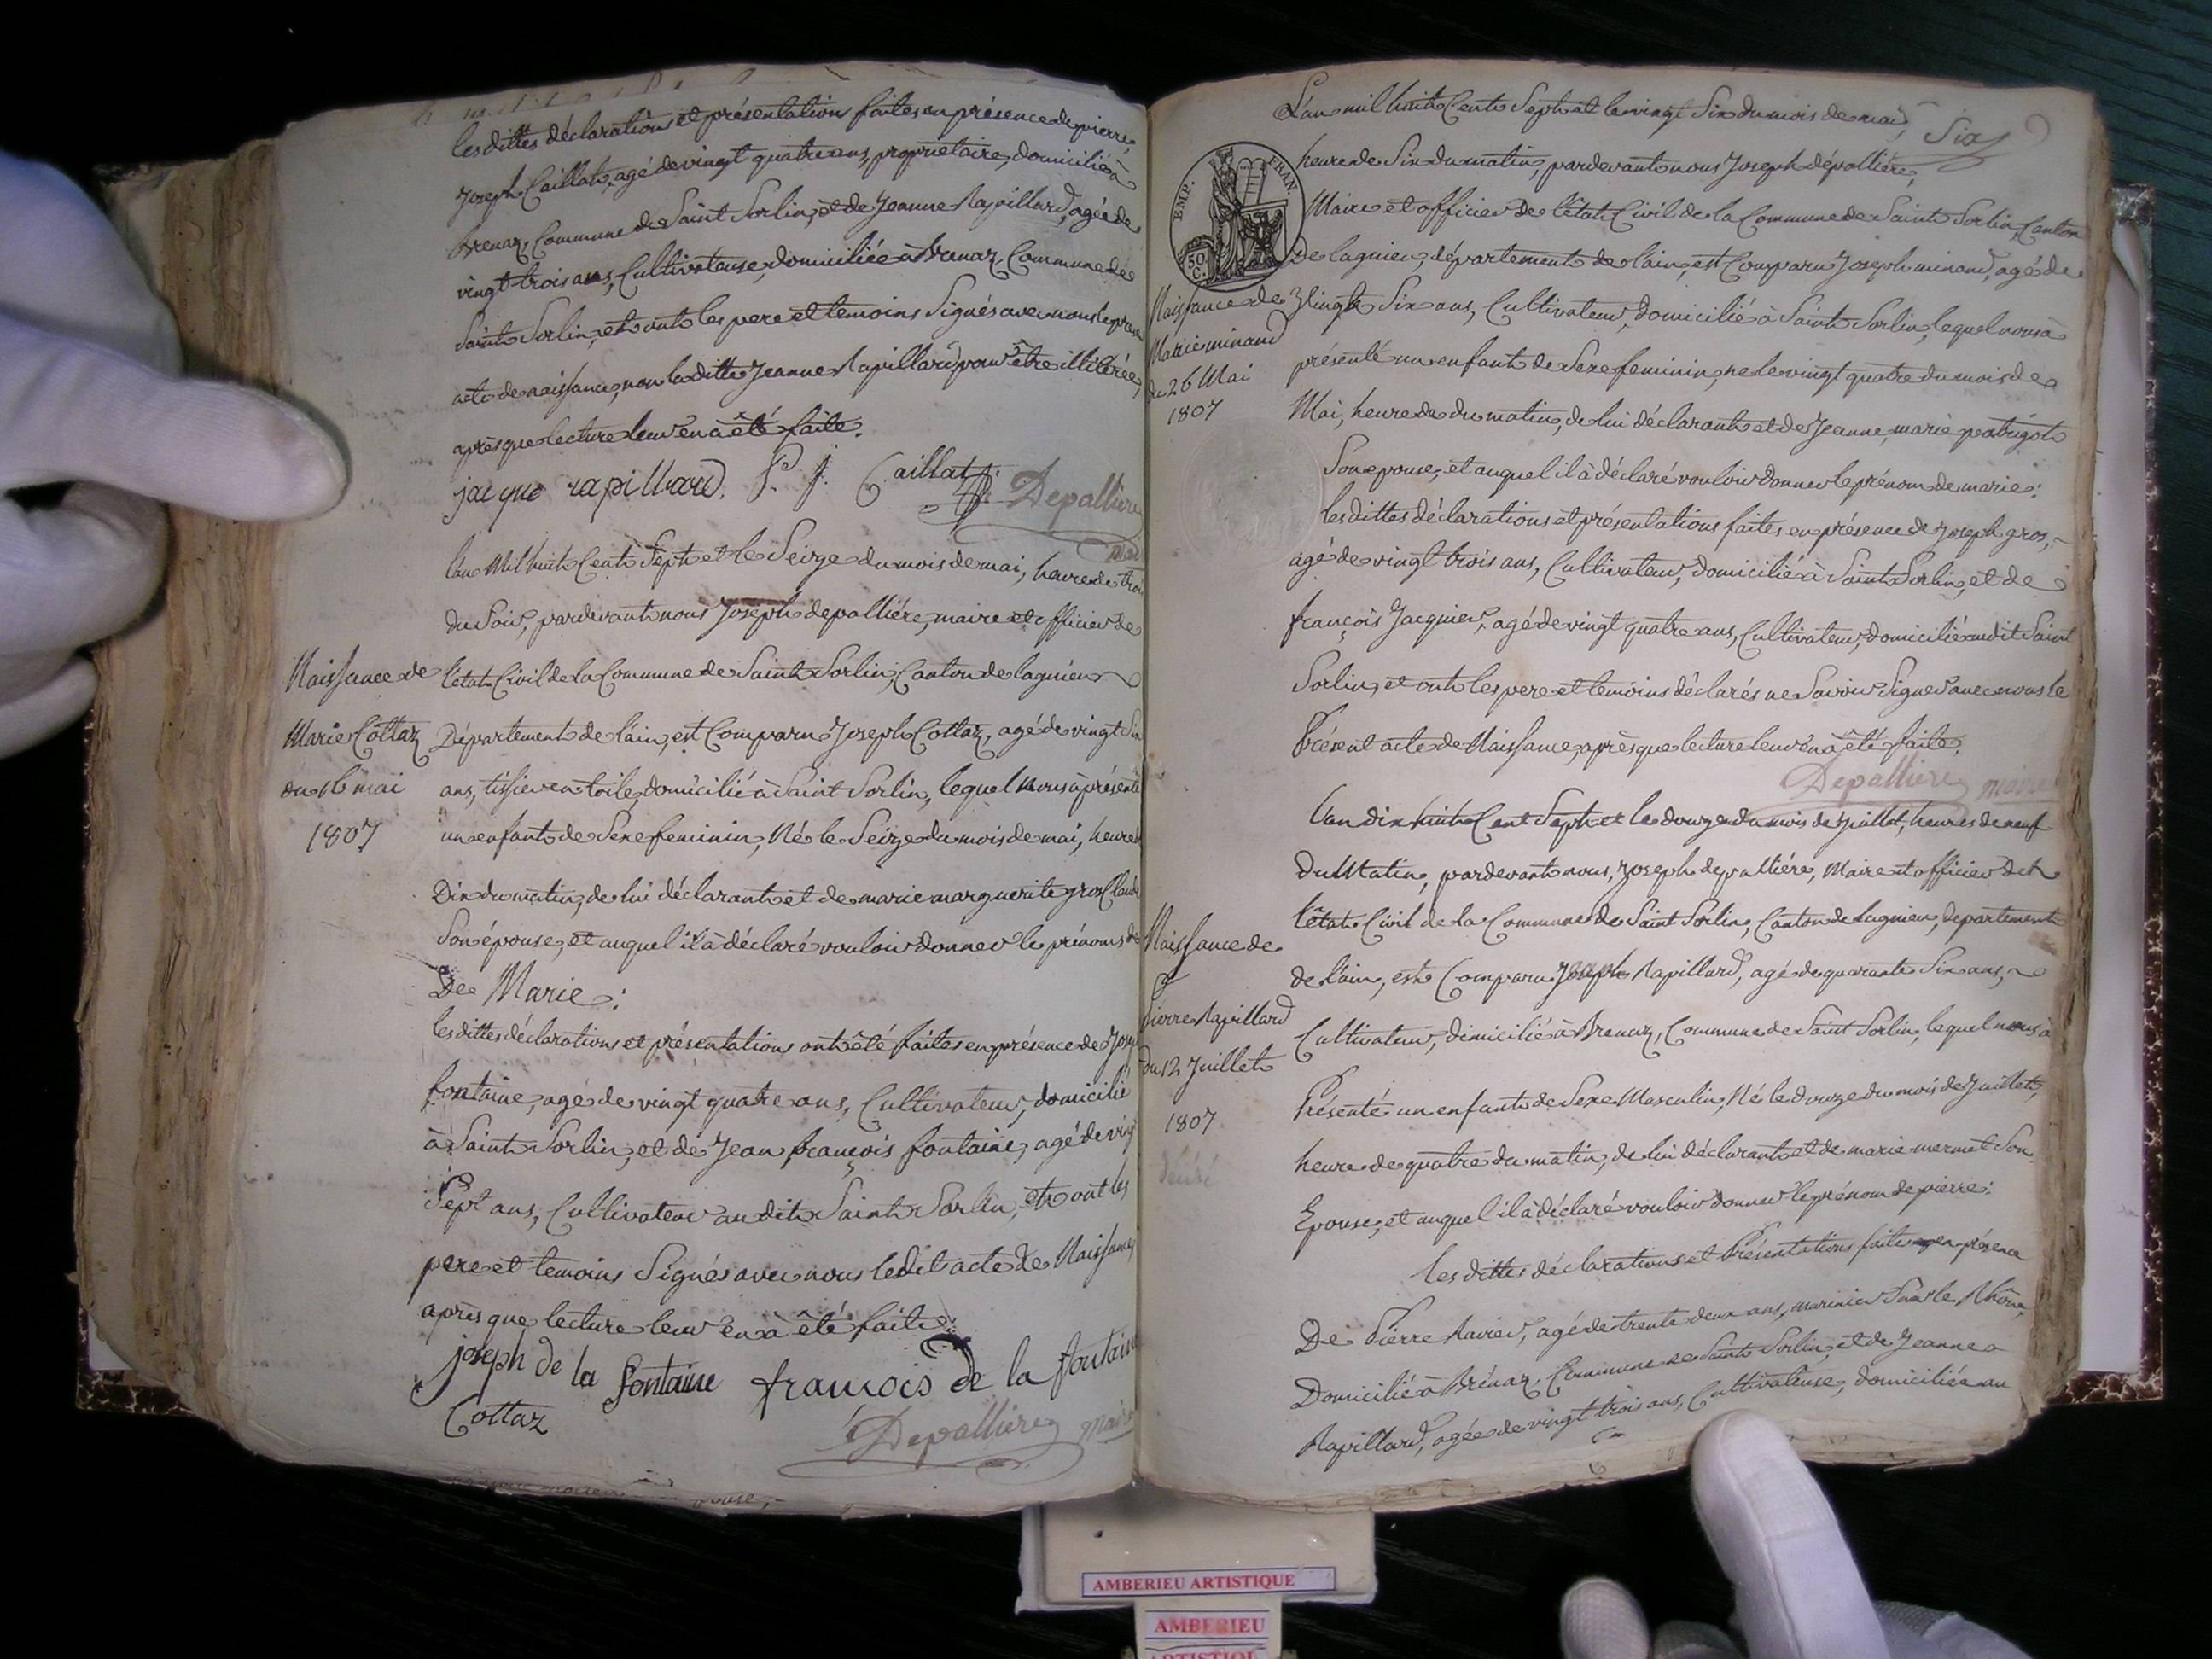 les dittes déclarations et présentations faites en présence de pierre
Joseph Caillat, agé de vingt quatre ans, propriétaire, domicilié à
brenaz, Commune de Saint Sorlin, et de Jeanne Rapillard, agée de
vingt trois ans, Cultivateuse, domiciliée à Brenaz, Commune de
Saint Sorlin, et ont les pere et temoins Signés avec nous le présent
acte de naissance, non la ditte Jeanne Rapillard, pour être illitérée,
après que lecture leur en à été faite.
jacque rapillard. P. J. Caillat Depalliere
mai
L'an Mil huit Cent Sept et le Seize du mois de mai, heure de trois
du Soir, pardevant nous Joseph depalliére, maire et officier de
Naissance de
Marie Cottaz
du 16 mai
1807
l'état Civil de la Commune de Saint Sorlin, Canton de lagnieu
Département de l'ain, est Comparu Joseph Cottaz, agé de vingt Six
ans, tissier en toile, domicilié à Saint Sorlin, lequel nous à présenté
un enfant de Sexe feminin, Né le Seize du mois de mai, heure de
Dix du matin, de lui déclarant et de marie marguerite grosClaude
Son épouse, et auquel il à déclaré vouloir donner le prénoms de
De Marie:
les dittes déclarations et présentations ont été faites en présence de Joseph
fontaine, agé de vingt quatre ans, Cultivateur, domicilié
à Saint Sorlin, et de Jean françois fontaine, agé de vingt
Sept ans, Cultivateur au dit Saint Sorlin, et ont les
pere et temoins Signés avec nous ledit acte de Naissance
après que lecture leur en à été faite.
joseph de la fontaine francois de la fontaine
Cottaz
Depalliere maire
L'an mil huit Cent Sept et le vingt Six du mois de mai,
Six
EMP. FRAN.
50 C.
heure de Six du matin, pardevant nous Joseph dépalliére,
Maire et officier de l'état Civil de la Commune de Saint Sorlin, Canton
De lagnieu, département de l'ain, est Comparu Joseph minand, agé de
Naissance de
Marie minand
du 26 Mai
1807
Vingt Six ans, Cultivateur, domicilié à Saint Sorlin, lequel nous à
présenté un enfant de Sexe feminin, né le vingt quatre du mois de
Mai, heure de du matin, de lui déclarant et de Jeanne marie patrigot
Son epouse, et auquel il à déclaré vouloir donner le prénom de marie:
les dittes déclarations et présentations faites en présence de Joseph gros,
agé de vingt trois ans, Cultivateur, domicilié à Saint Sorlin, et de
françois Jacquier, agé de vingt quatre ans, Cultivateur, domicilié audit Saint
Sorlin, et ont les pere et temoins déclarés ne Savoir Signer avec nous le
Présent acte de Naissance, après que lecture leur en à été faite.
Depalliere maire
L'an dix huit Cent Sept et le douze du mois de Juillet, heures de neuf
du Matin, pardevant nous, Joseph depalliére, Maire et officier de
l'état Civil de la Commune de Saint Sorlin, Canton de Lagnieu, departement
Naissance de
Pierre Rapillard
du 12 Juillet
1807
de l'ain, est Comparu Joseph Rapillard, agé de quarante Six ans,
Cultivateur, dimicilié à Brenaz, Commune de Saint Sorlin, lequel nous à
Présenté un enfant de Sexe Masculin, Né le douze du mois de Juillet,
heure de quatre du matin, de lui déclarant et de marie mermet Son
Epouse, et auquel il à déclaré vouloir donner le prénom de pierre:
les dittes déclarations et Présentations faites en présence
De Pierre Ravier, agé de trente deux ans, marinier Sur le Rhône,
Domicilié à Brénaz, Commune de Saint Sorlin, et de Jeanne
Rapillard, agée de vingt trois ans, Cultivateuse, domiciliée au
AMBERIEU ARTISTIQUE
AMBERIEU
ARTISTIQUE